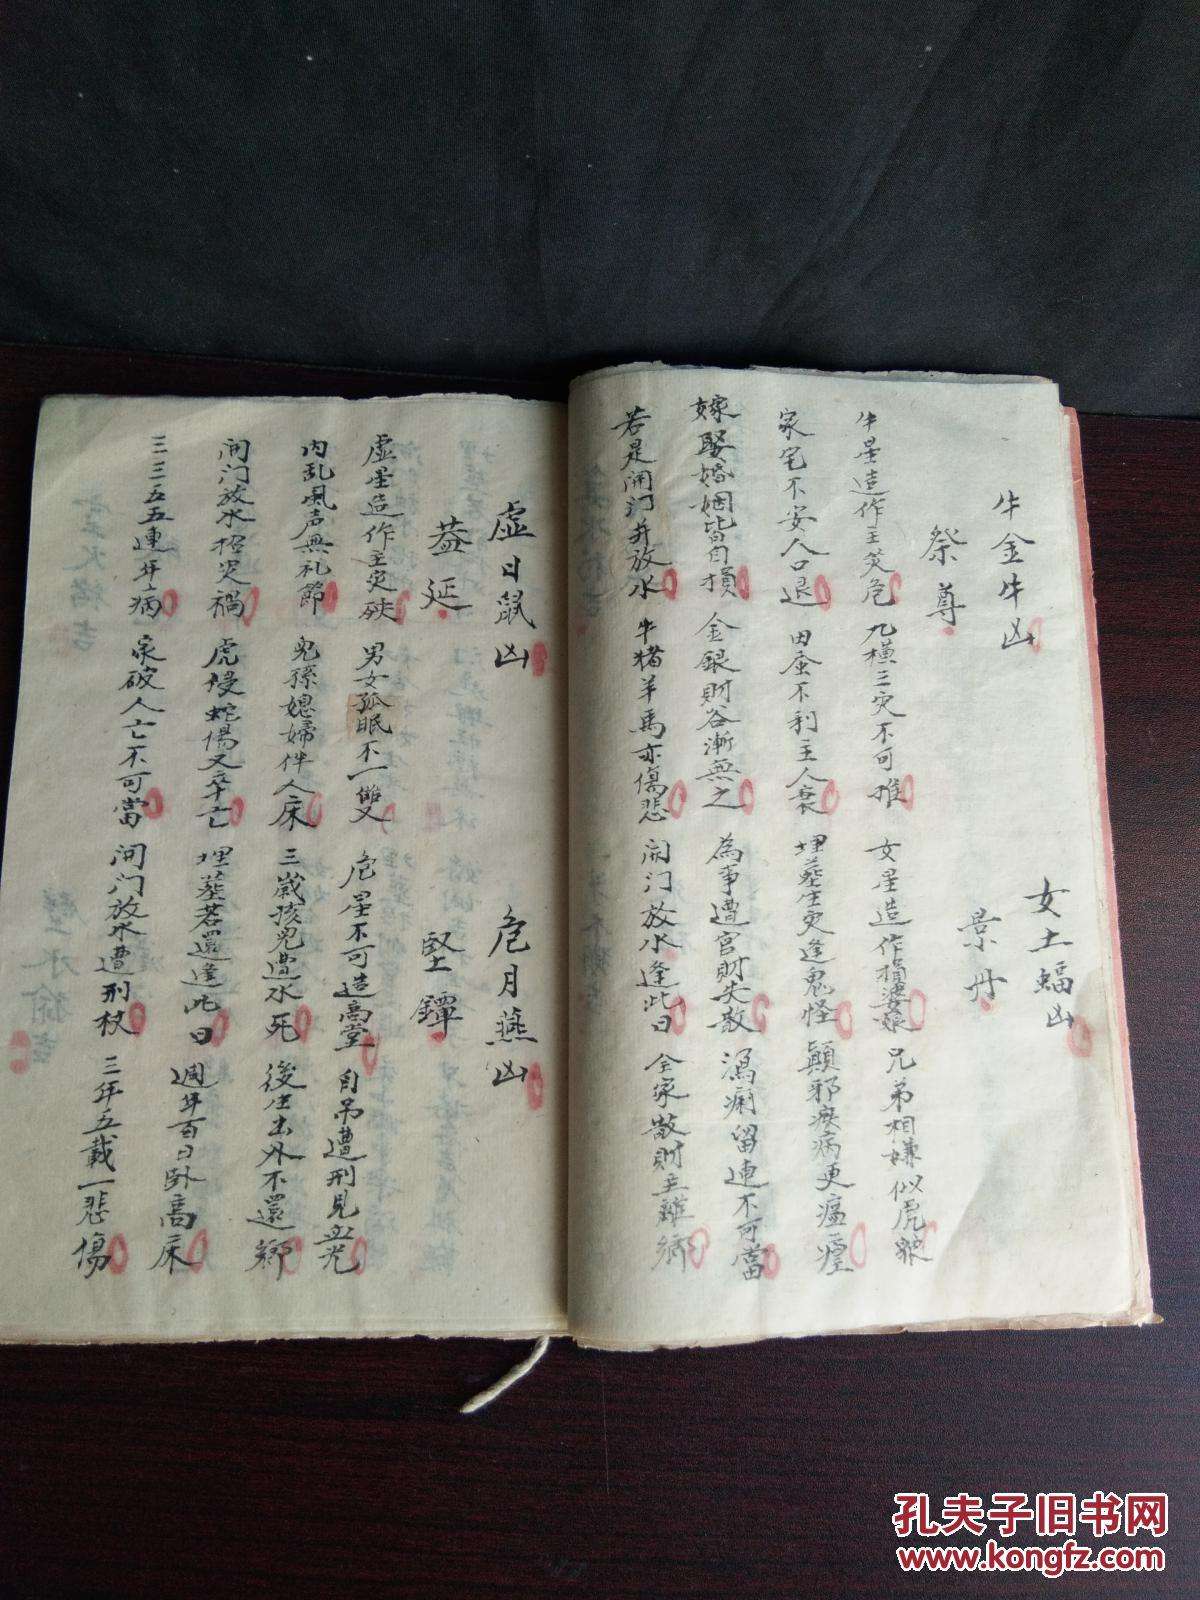 牛金牛凶
女土蝠凶
祭尊
景丹
牛星造作主災危 九横三灾不可推
家宅不安人口退 田蚕不利主人衰
嫁娶婚姻皆自損 金銀財谷漸無之
若是開门并放水 牛猪羊馬亦傷悲
女星造作損婆娘 兄弟相嫌似虎狼
埋葬生灾逢鬼怪 顛邪疾病更瘟瘽
為事遭官財失散 瀉痢留連不可當
開门放水逢此日 全家散財主離鄉
虚日鼠凶
危月燕凶
盖延
堅鐔
虚星造作主灾殃 男女孤眠不一雙
内乱風声無礼節 兒孫媳婦伴人床
開门放水招灾禍 虎慢蛇傷又卒亡
三三五五連年病 家破人亡不可當
危星不可造高堂 自吊遭刑見血光
三歲孩兒遭水死 後生出外不還鄉
埋葬若還逢此日 週年百日卧高床
開门放水遭刑杖 三年五載一悲傷
孔夫子旧书网
www.kongfz.com